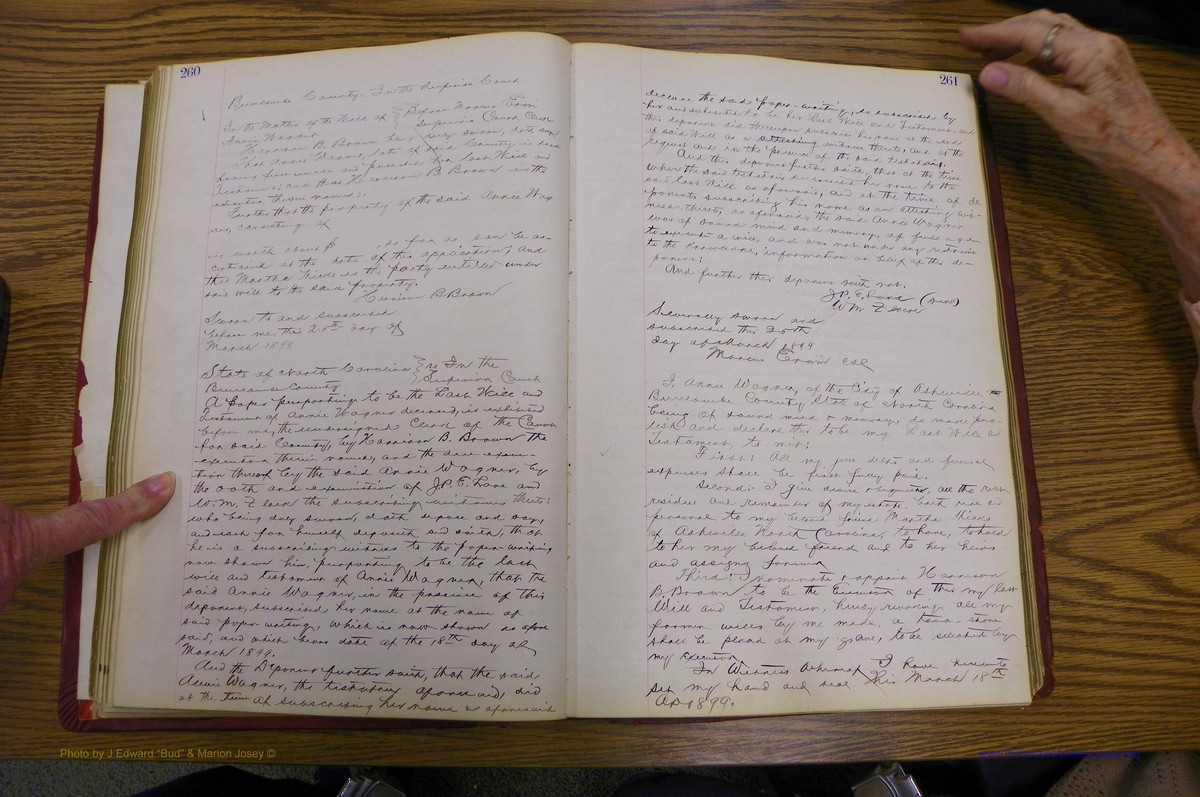 260
Buncombe County - In the Superior Court
In the Matter of the Will of
Annie Wagner
Before Marcus Erwin
Superior Court Clerk
Harrison B. Brown being duly sworn, doth say:
That Annie Wagner, late of said County is dead
having been made and published her Last Will and
Testament, and that Harrison B. Brown is the
executor therein named.
Further that the property of the said Annie Wag
ner, consisting of
is worth about $ , so far as can be as-
certained at the date of this application; and
that Martha Hicks is the party entitled under
said will to the said property.
Harrison B. Brown
Sworn to and subscribed
before me this 20th day of
March 1899
State of North Carolina
Buncombe County
ss In the
Superior Court
A paper purporting to be the Last Will and
Testament of Annie Wagner deceased, is exhibited
before me, the undersigned Clerk of the Court
for said County, by Harrison B. Brown the
executor therein named, and the due execu-
tion thereof by the said Annie Wagner, by
the oath and examination of J.P.E. Love and
W.M. the subscribing witnesses thereto;
who being duly sworn, doth depose and say,
and each for himself deposeth and saith, that
he is a subscribing witness to the paper-writing
now shown him, purporting to be the last
will and testament of Annie Wagner, that the
said Annie Wagner, in the presence of this
deponent, subscribed her name at the name of
said paper-writing, which is now shown as afore
said, and which bears date of the 18th day of
March 1899.
And the Deponent further saith, that the said
Annie Wagner, the testatrix aforesaid, did
at the time of subscribing her name as aforesaid
261
declare the said paper-writing, so subscribed by
her and exhibited to be her Last Will and Testament and
this deponent did thereupon subscribe his name at the end
of said Will as an attesting witness thereto, and at the
request and in the presence of the said testatrix.
And this deponent further saith, that at the time
when the said testatrix subscribed her name to the
said last Will as aforesaid, and at the time of de
ponents subscribing his name as an attesting wit-
ness thereto, as aforesaid, the said Annie Wagner
was of sound mind and memory, of full age
to execute a will, and was not under any restraint
to the knowledge, information or belief of this de-
ponent:
And further this deponent saith not.
J.P.E. Love (seal)
W M
Severally sworn and
subscribed this 20th
day of March 1899
Marcus Erwin CSC
I Annie Wagner, of the City of Asheville
Buncombe County State of North Carolina
being of sound mind & memory, do make pub-
lish and declare this to be my Last Will &
Testament, to wit:
First: All my just debts and funeral
expenses shall be first fully paid.
Second: I give devise & bequeath, all the rest
residue and remainder of my estate both real &
personal to my friend Martha Hicks
of Asheville North Carolina, to have, to hold
to her my beloved friend and to her heirs
and assigns forever
Third: I nominate & appoint Harrison
B. Brown to be the Executor of this my last
Will and Testament, hereby revoking all my
former wills by me made, a tomb-stone
shall be placed at my grave, to be selected by
my executor.
In Witness Whereof I have hereunto
set my hand and seal this March 18th
AD 1899.
Photo by J Edward "Bud" & Marion Josey ©